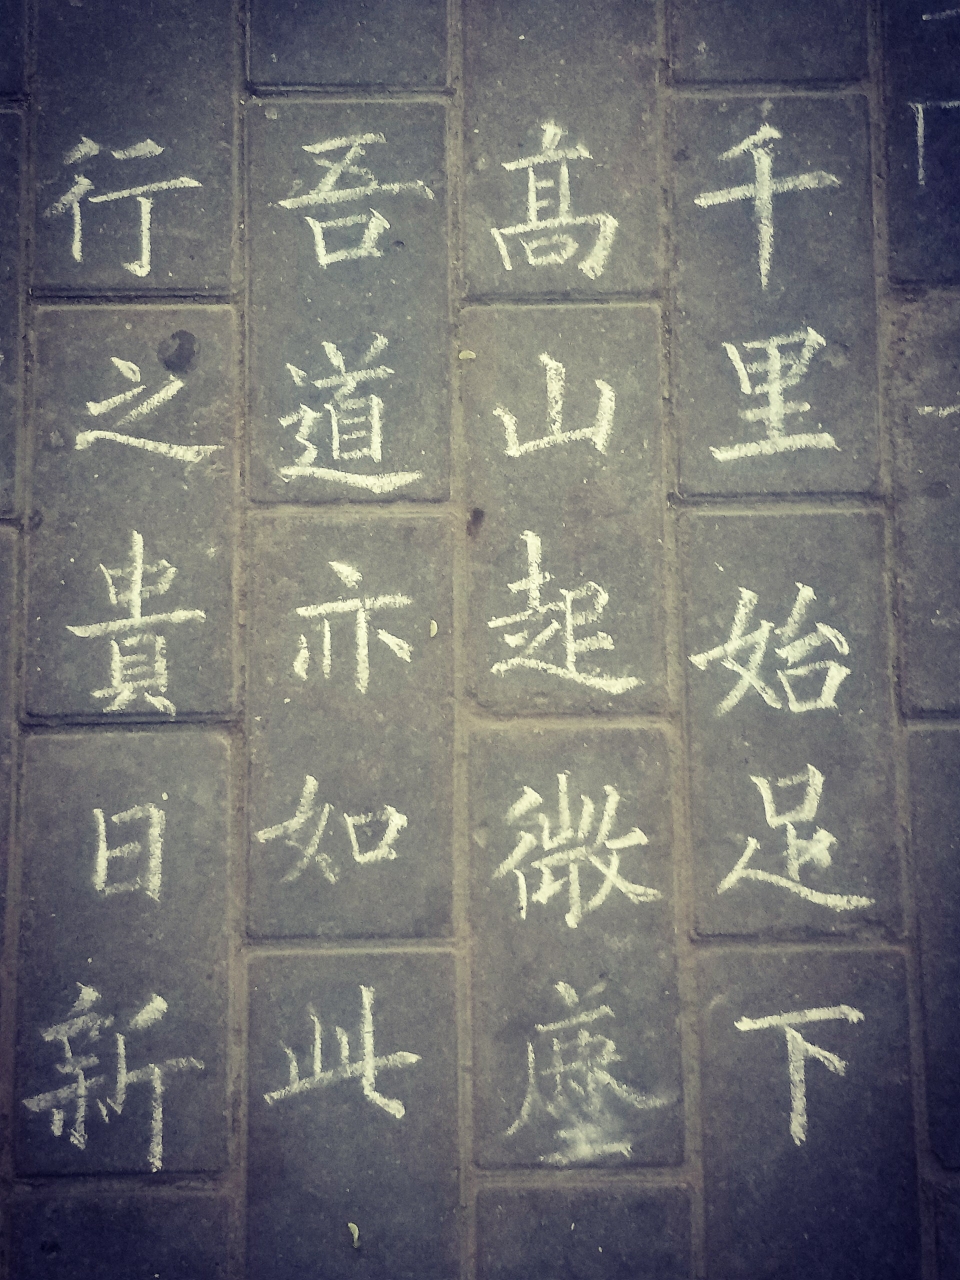 千里始足下
高山起微塵
吾道亦如此
行之貴日新